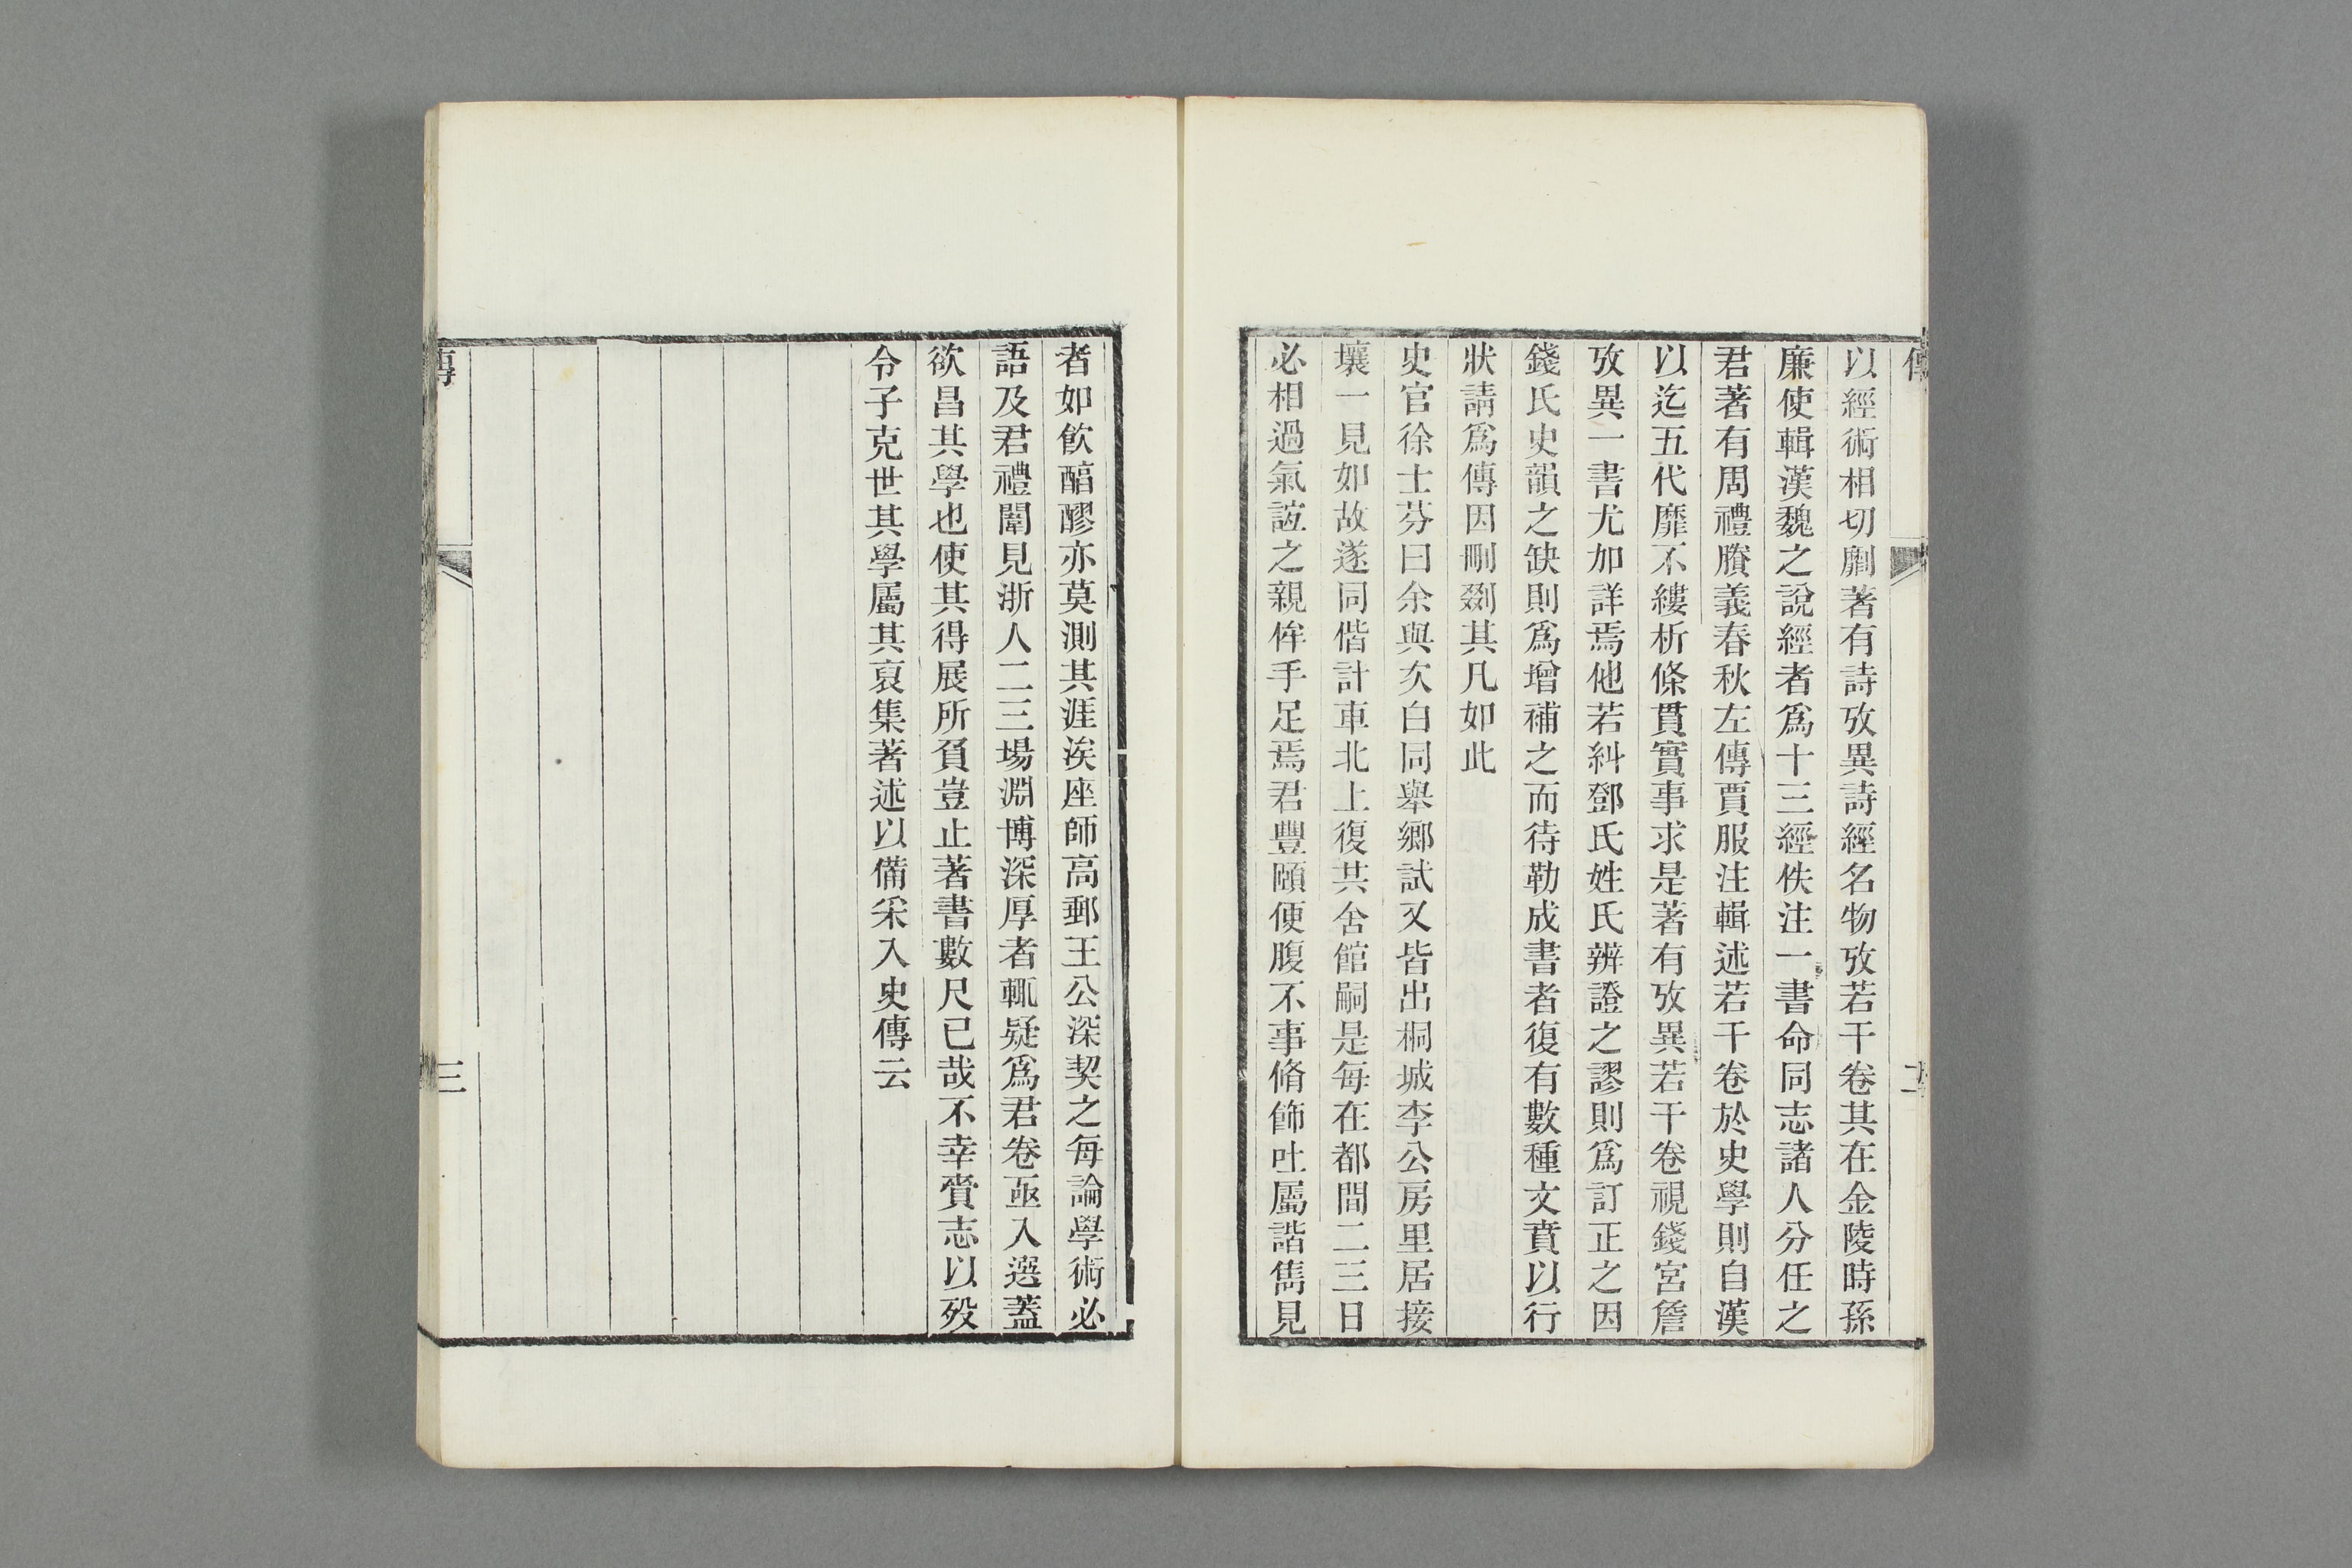 傳
二
以經術相切劘著有詩攷異詩經名物攷若干卷其在金陵時孫
廉使輯漢魏之說經者爲十三經佚注一書命同志諸人分任之
君著有周禮賸義春秋左傳賈服注輯述若干卷於史學則自漢
以迄五代靡不縷析條貫實事求是著有攷異若干卷視錢宮詹
攷異一書尤加詳焉他若糾鄧氏姓氏辨證之謬則爲訂正之因
錢氏史韻之缺則爲增補之而待勒成書者復有數種文賁以行
狀請爲傳因刪剟其凡如此
史官徐士芬曰余與次白同舉鄉試又皆出桐城李公房里居接
壤一見如故遂同偕計車北上復共舍館嗣是每在都間二三日
必相過氣誼之親侔手足焉君豐頤便腹不事脩飾吐屬諧雋見
者如飲醇醪亦莫測其涯涘座師高郵王公深契之每論學術必
語及君禮闈見浙人二三場淵博深厚者輒疑爲君卷亟入選蓋
欲昌其學也使其得展所負豈止著書數尺已哉不幸賫志以歿
令子克世其學屬其裒集著述以備采入史傳云
傳
三